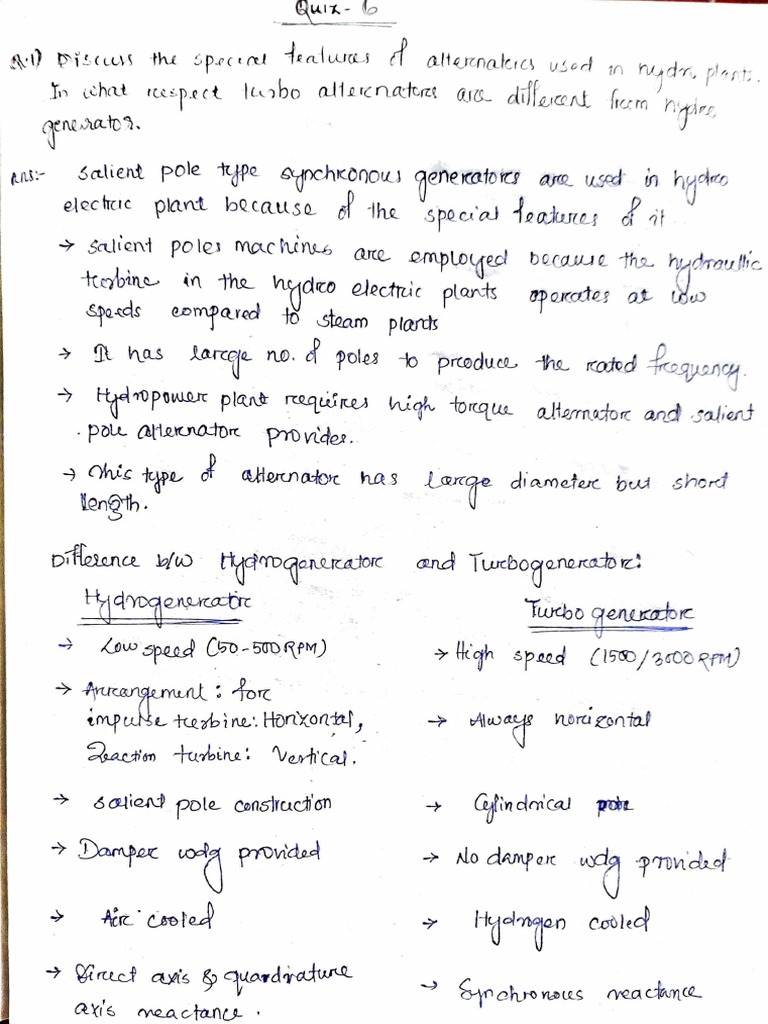 Quiz - 6
Q.1) Discuss the special features of alternators used in hydro plants.
In what respect turbo alternators are different from hydro
generator.
Ans:- Salient pole type synchronous generators are used in hydro
electric plant because of the special features of it
→ Salient poles machines are employed because the hydraullic
turbine in the hydro electric plants operates at low
speeds compared to steam plants
→ It has large no. of poles to produce the rated frequency.
→ Hydropower plant requires high torque alternator and salient
pole alternator provides.
→ This type of alternator has large diameter but short
length.
Difference b/w Hydrogenerator and Turbogenerator:
Hydrogenerator Turbo generator
→ Low speed (50-500 RPM) → High speed (1500/3000 RPM)
→ Arrangement: for
impulse turbine: Horizontal, → Always horizontal
Reaction turbine: Vertical.
→ Salient pole construction → Cylindrical pole
→ Damper wdg provided → No damper wdg provided
→ Air cooled → Hydrogen cooled
→ Direct axis & quardrature → Synchronous reactance
axis reactance.